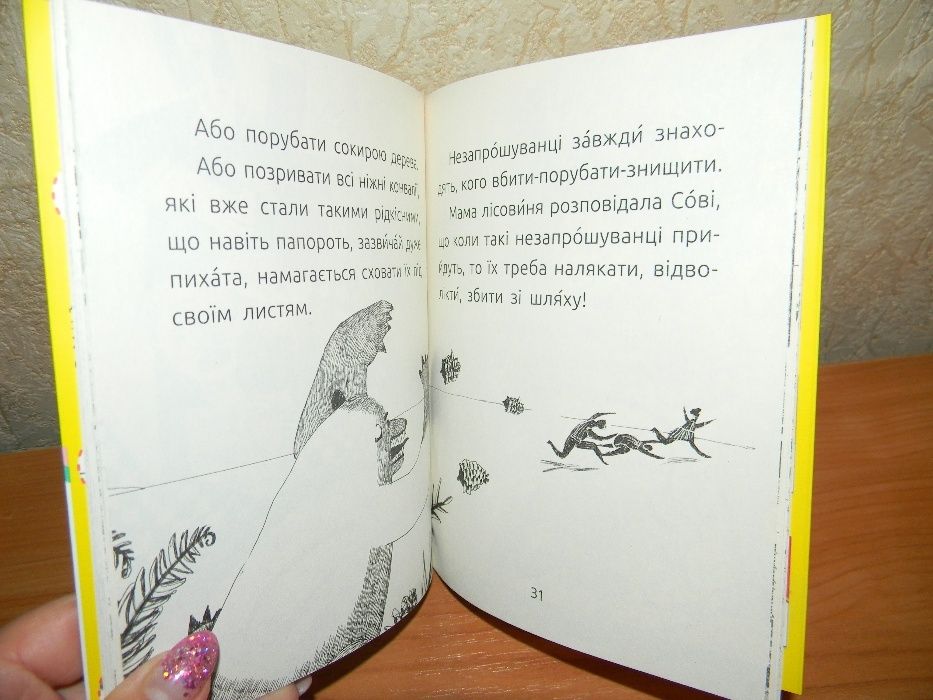 Або порубати сокирою дерева.
Або позривати всі ніжні конвалії,
які вже стали такими рідкісними,
що навіть папороть, зазвича́й дуже
пиха́та, намагається сховати їх під
своїм листям.
Незапро́шуванці за́вжди́ знахо-
дять, кого вбити-порубати-знищити.
Мама лісови́ня розповідала Со́ві,
що коли такі незапро́шуванці при-
йдуть, то їх треба налякати, відво-
лікти́, збити зі шля́ху!
31